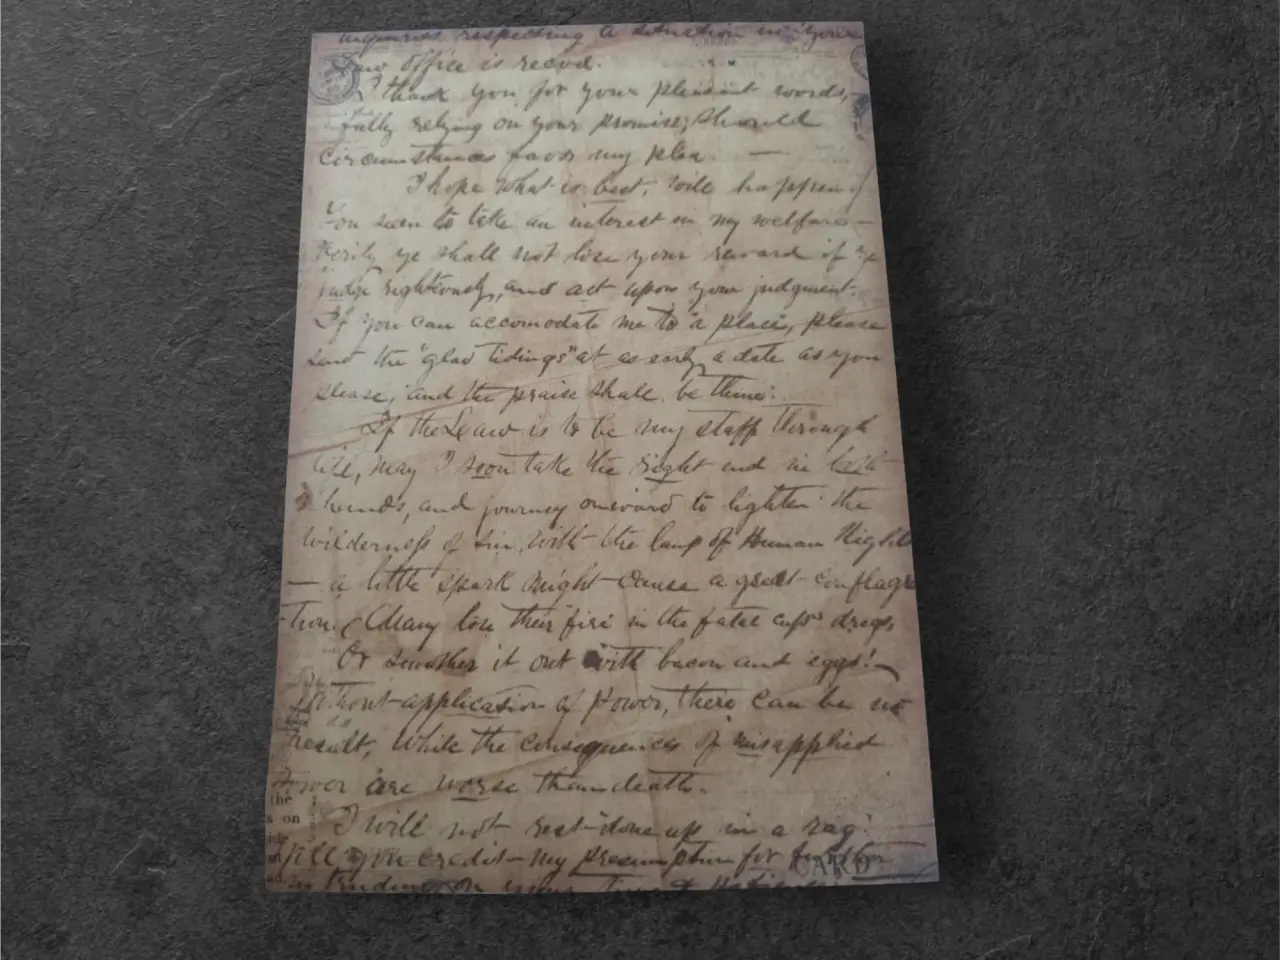 inquiries respecting a situation in your
Law office is recevd.
I thank you for your pleasant words,
fully relying on your promise; should
circumstances favor my plea. —
I hope what is best, will happen
You seem to take an interest in my welfare—
Verily ye shall not lose your reward if ye
judge righteously, and act upon your judgment.
If you can accomodate me to a place, please
send the "glad tidings" at as early a date as you
please, and the praise shall be thine.
If the Law is to be my staff through
life, may I soon take the right end in both
hands, and journey onward to lighten the
wilderness of sin, with the lamp of Human Rights
— a little spark might cause a great conflagra
tion. (Many lose their fire in the fatal cups dregs,
Or smother it out with bacon and eggs!—
Without application of Power, there can be no
result, while the consequences of misapplied
Power are worse than death.
the
s on
I will not rest "done up in a rag"
Will you credit my presumption for further
CARD
on your